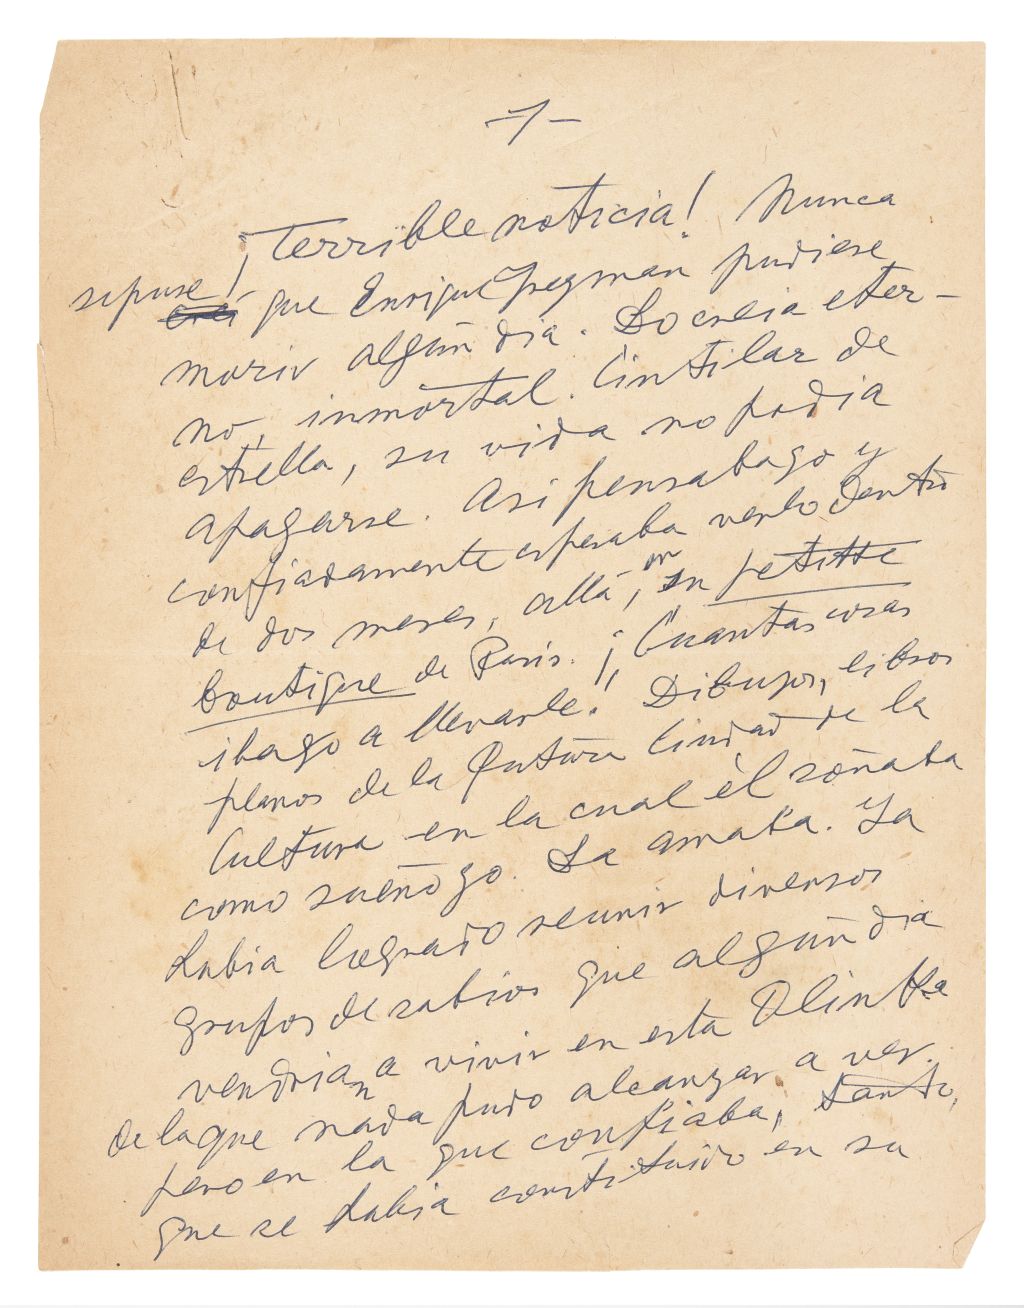 -1-
¡Terrible noticia! Nunca
supuse ! que Enrique pudiese
morir algún dia. Lo creia eter-
no, inmortal. Cintilar de
estrella, su vida no podia
apagarse. Asi pensaba yo y
confiadamente esperaba verlo dentro
de dos meses, allá, en petitte
boutique de Paris. ¡Cuantas cosas
iba yo a llevarle! Dibujos, libros
planos de la futura Ciudad de la
Cultura en la cual él soñaba
como sueño yo. La amaba. Ya
habia logrado reunir diversos
grupos de sabios que algún dia
vendrian a vivir en esta Olinka
de la que nada pudo alcanzar a ver.
pero en la que confiaba, tanto,
que se habia constituido en su